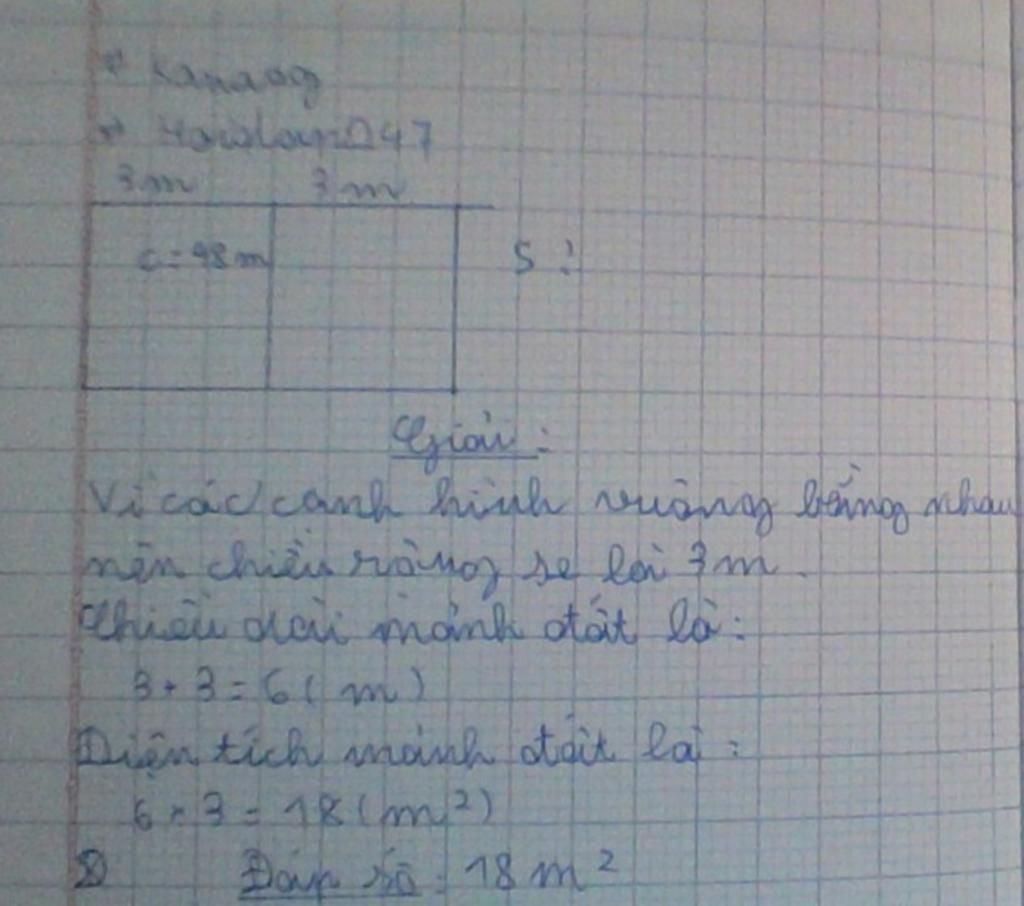 3m 3m
C = 48 m S ?
Giải :
Vì các cạnh hình vuông bằng nhau
nên chiều rộng sẽ là 3m.
Chiều dài mảnh đất là :
3 + 3 = 6 ( m )
Diện tích mảnh đất là :
6 × 3 = 18 ( m² )
Đáp số : 18 m²